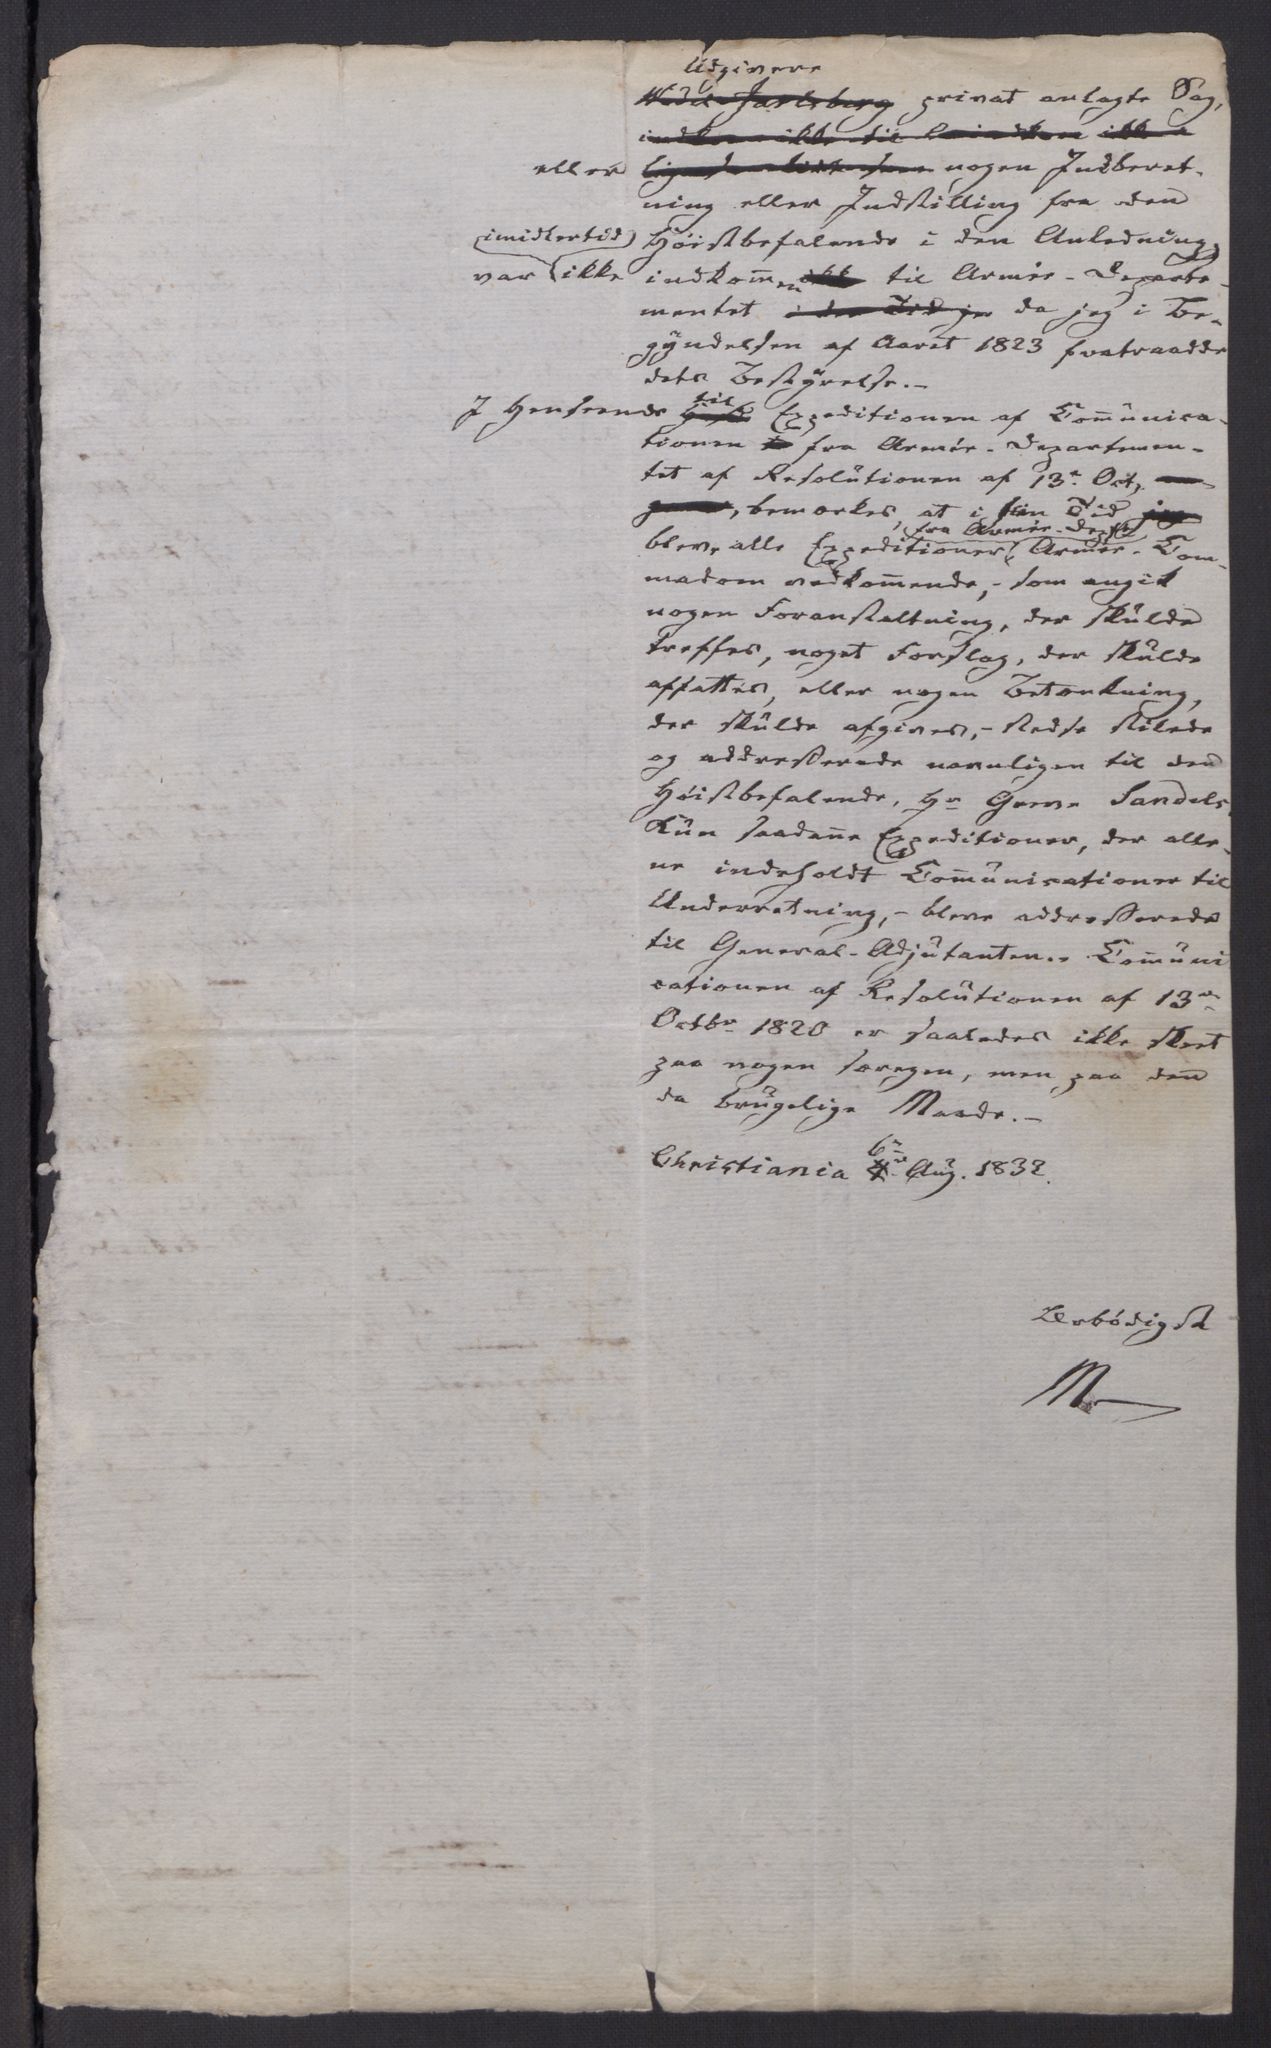 Udgivere
Wedel-Jarlsberg privat anlagte Sag,
indkom ikke til
eller nogen Indberet-
ning eller Indstilling fra den
(imidlertid) Höistbefalende i den Anledning,
var ikke indkommen ikke til Armée-Departe-
mentet i den Tid jeg da jeg i Be-
gyndelsen af Aaret 1823 fratraadde
dets Bestyrelse.-
I Henseende til Expeditionen af Communica-
tionen fra Armée-Departemen-
tet af Resolutionen af 13e Oct,
, bemærkes, at i sin Tid jeg
fra Armée-Dept
bleve alle Expeditioner Armée-Com-
madoen vedkommende,- som angik
nogen Foranstaltning, der skulde
treffes, noget Forslag, der skulde
affattes, eller nogen Betænkning,
der skulde afgives,- stedse stilede
og addresserede navnligen til den
Höistbefalende, Hr Greve Sandels.
Kun saadanne Expeditioner, der alle-
ne indeholdt Communicationer til
Underretning,- bleve addresserede
til General-Adjutanten.- Communi
cationen af Resolutionen af 13e
Octbr 1820 er saaledes ikke skeet
paa nogen særegen, men paa den
da brugelige Maade.-
6te
Christiania Aug. 1832.
Ærbödigst
M